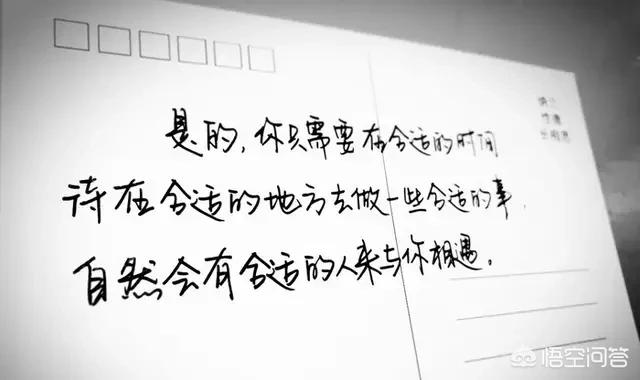 是的,你只需要在合适的时间
待在合适的地方去做一些合适的事,
自然会有合适的人来与你相遇。
悟空问答